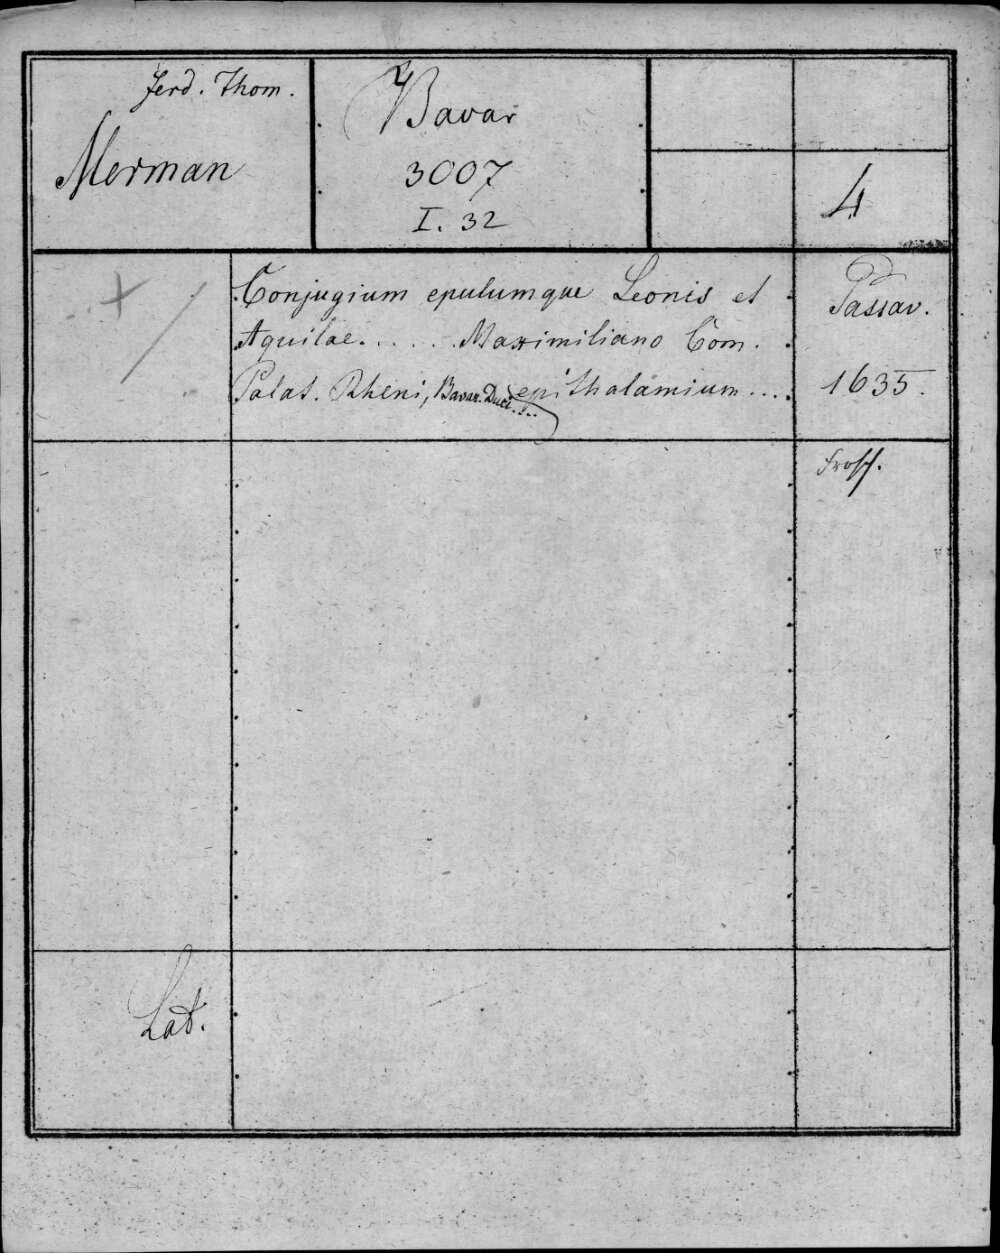 Ferd. Thom.
Merman
4
Bavar
3007
I. 32
4
Conjugium epulumque Leonis et
Aquilae...... Maximiliano Com.
Palat. Rheni, Bavar. Duci... epithalamium....
Passav.
1635.
Lat.